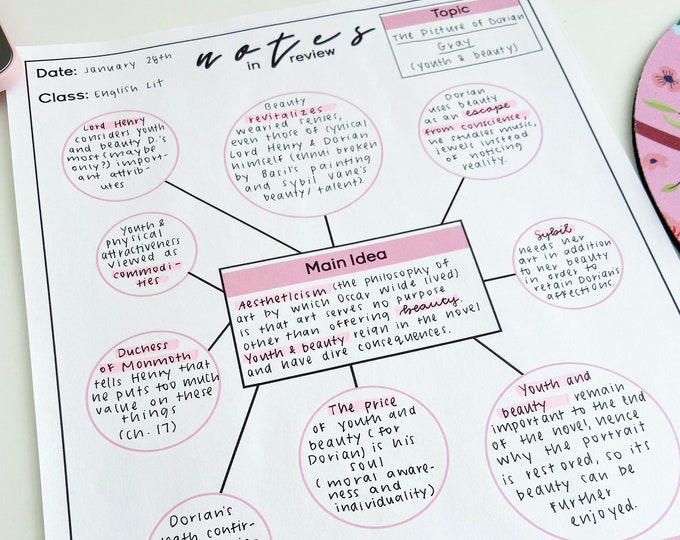 notes
in review
Date: January 28th
Class: English Lit
Topic
The Picture of Dorian
Gray
(youth & beauty)
Lord Henry
considers youth
and beauty D.'s
most (maybe
only?) import-
ant attrib-
utes
Beauty
revitalizes
wearied senses,
even those of cynical
Lord Henry & Dorian
himself (ennui broken
by Basil's painting
and Sybil Vane's
beauty/talent).
Dorian
uses beauty
as an escape
from conscience;
he studies music,
jewels instead
of noticing
reality.
Youth &
physical
attractiveness
viewed as
commodi-
ties
Main Idea
Aestheticism (the philosophy of
art by which Oscar Wilde lived)
is that art serves no purpose
other than offering beauty.
Youth & beauty reign in the novel
and have dire consequences.
Sybil
needs her
art in addition
to her beauty
in order to
retain Dorian's
affections.
Duchess
of Monmoth
tells Henry that
he puts too much
value on these
things
(Ch. 17)
The price
of youth and
beauty (for
Dorian) is his
soul
(moral aware-
ness and
individuality)
Youth and
beauty remain
important to the end
of the novel, hence
why the portrait
is restored, so its
beauty can be
further
enjoyed.
Dorian's
confir-